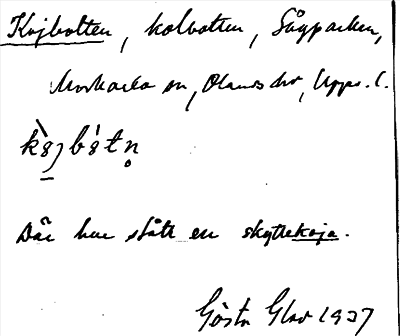 Kojbotten, kolbotten, Sågparken,
Morkarla sn, Olands hd, Upps. l.
Där har stått en skyttekoja.
Gösta Glad 1937